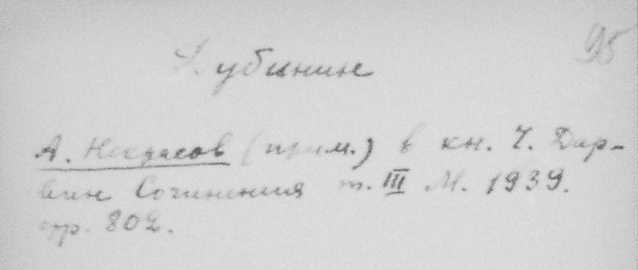 95
Кубинин
А. Некрасов (прим.) в кн. Ч. Дар-
вин Сочинения т. III М. 1939.
стр. 802.